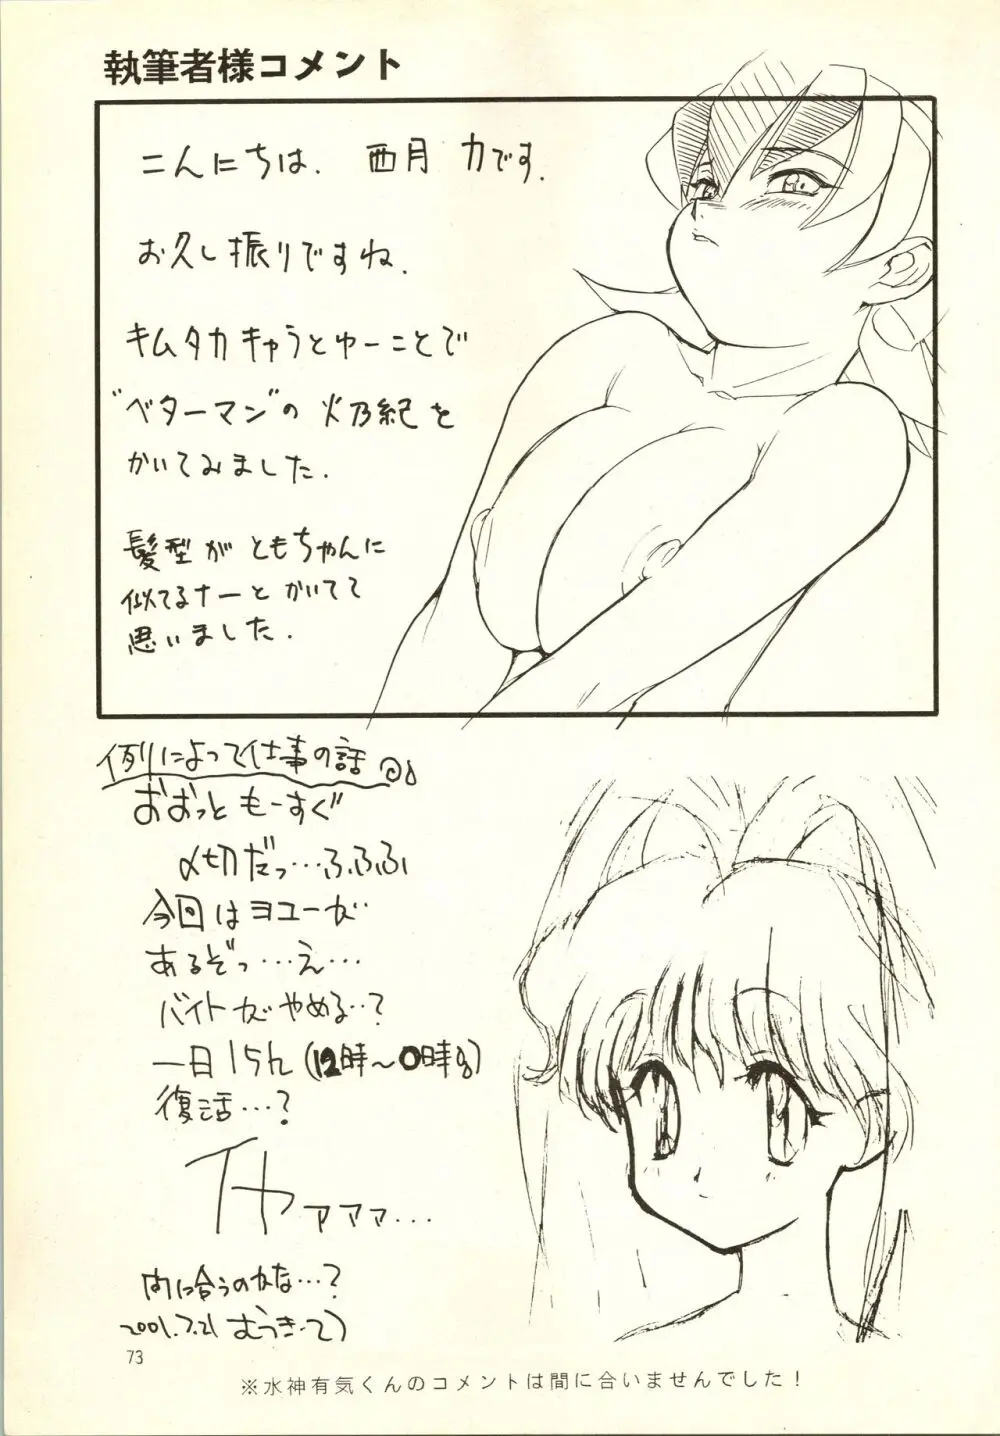 執筆者様コメント
こんにちは. 西月 力です.
お久し振りですね.
キムタカキャラとゆーことで
"ベターマン"の 火乃紀を
かいてみました.
髪型が ともちゃんに
似てるナーと かいてて
思いました.
例によって仕事の話
おおっと もーすぐ
〆切だっ…ふふふ
今回はヨユーが
あるぞっ…え…
バイトがやめる…?
一日15h (12時～0時の)
復活…?
イヤァァァ…
間に合うのかな…?
2001.7.21
73
※水神有気くんのコメントは間に合いませんでした!